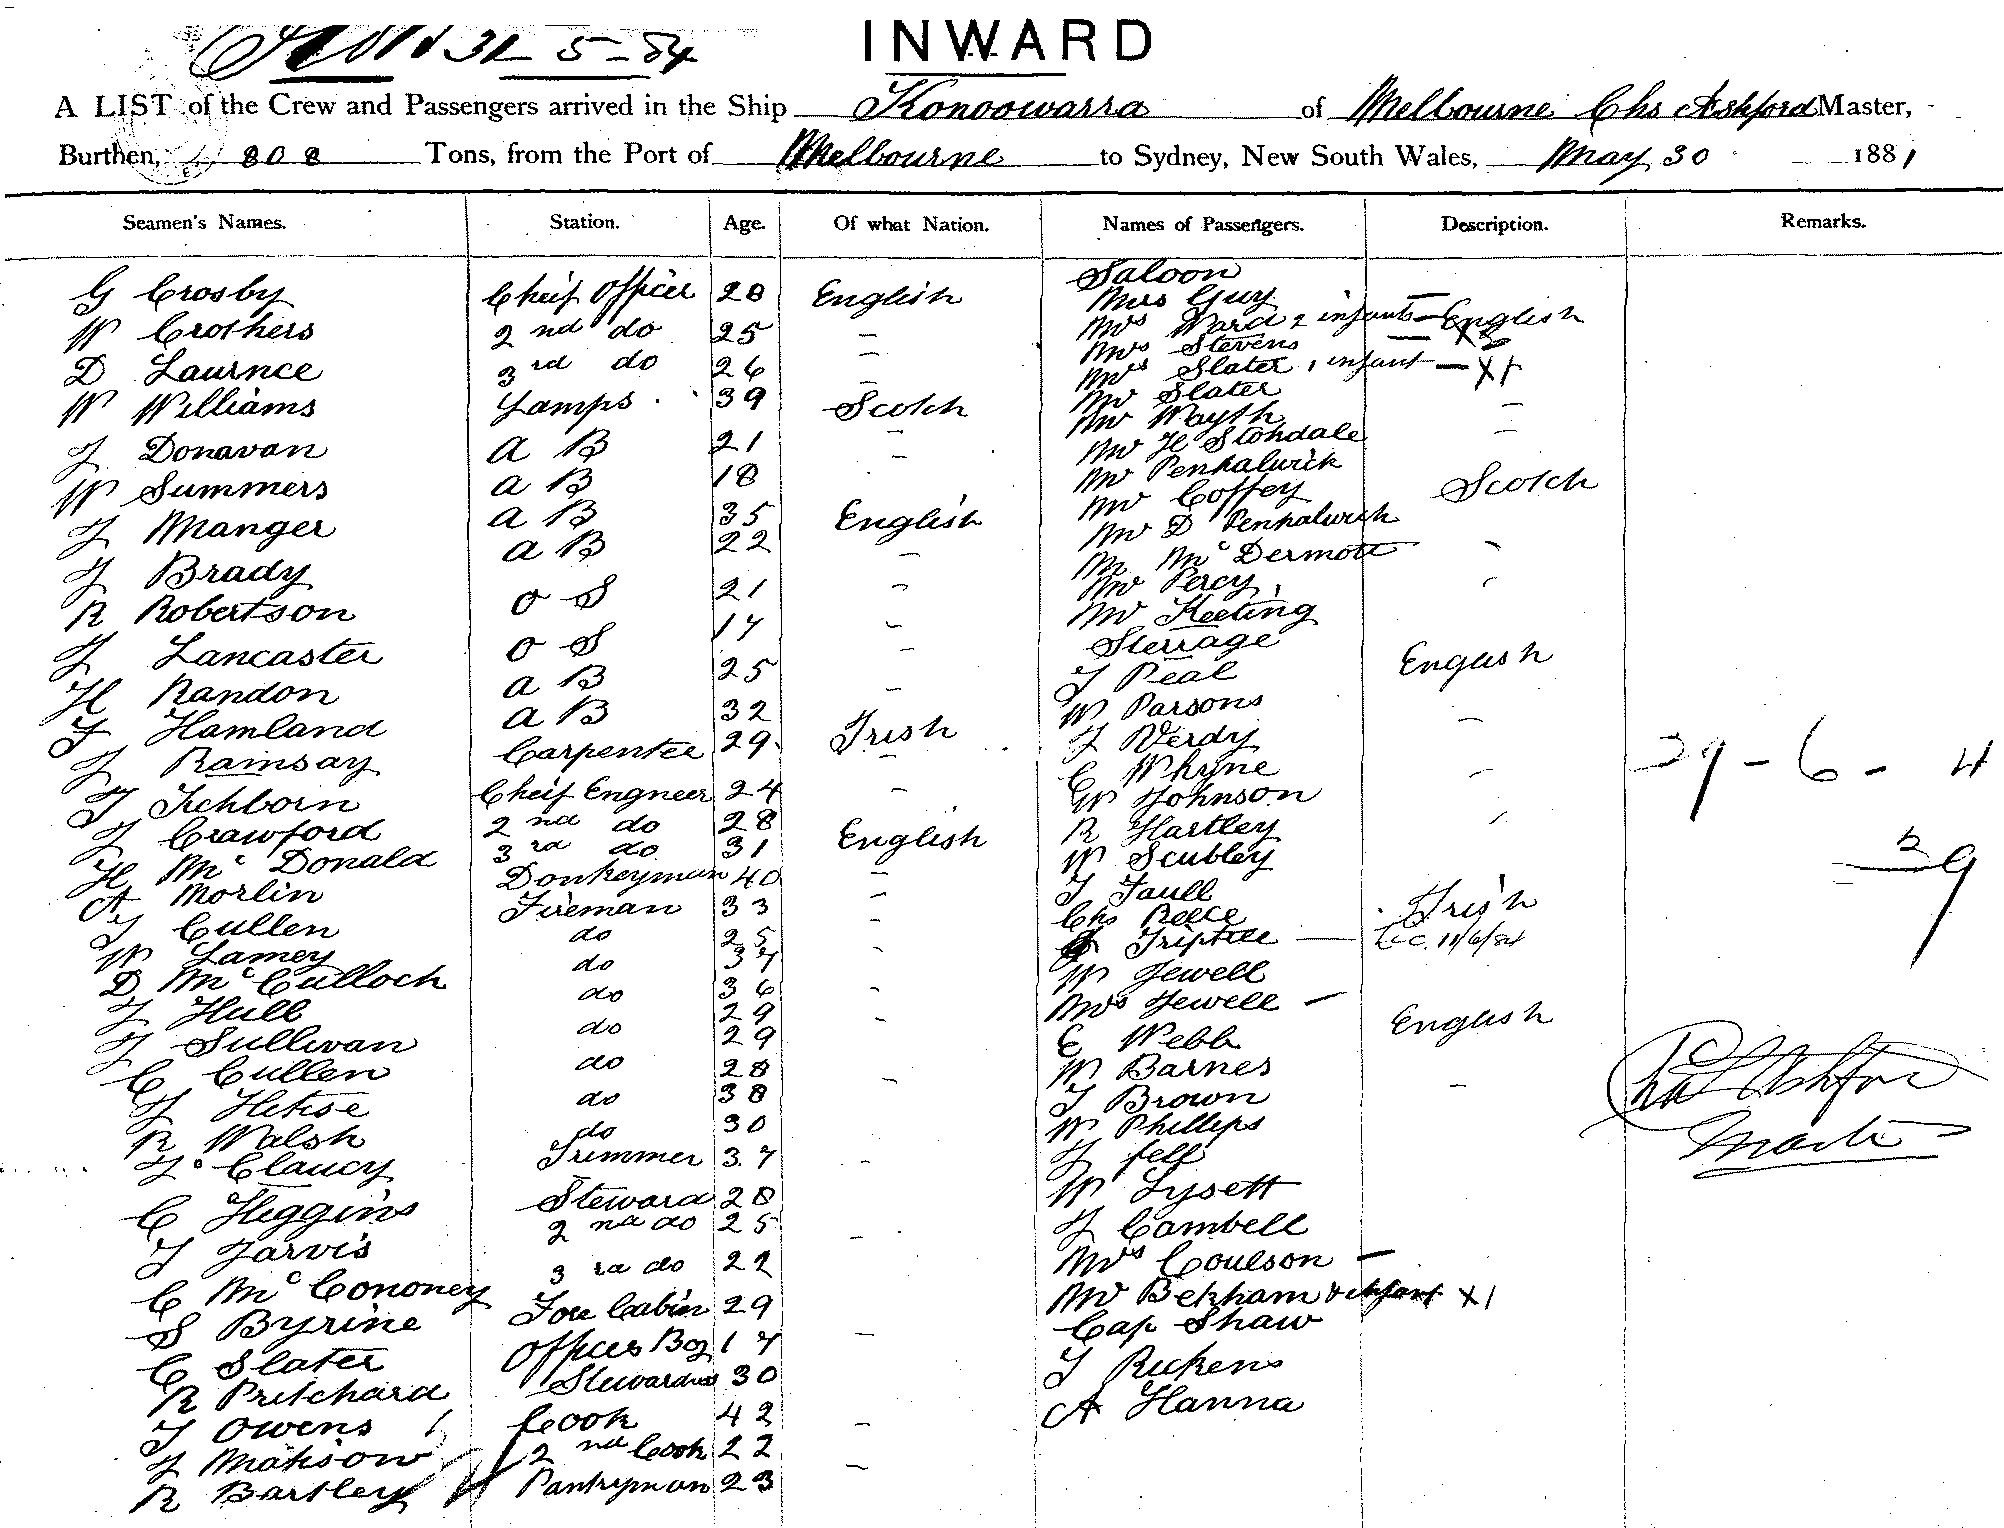 31-5-84
INWARD
A LIST of the Crew and Passengers arrived in the Ship Konoowarra of Melbourne Chs Ashford Master,
Burthen, 808 Tons, from the Port of Melbourne to Sydney, New South Wales, May 30 1881
Seamen's Names. Station. Age. Of what Nation. Names of Passengers. Description. Remarks.
Saloon
G Crosby Cheif Officer 28 English Mrs Guy —
W Crothers 2nd do 25 – Mrs Ward 2 infants – English X2
D Laurnce 3rd do 26 – Mrs Stevens —
Mrs Slater 1 infant — X1
W Williams Lamps 39 Scotch Mr Slater
Mr Wayth –
J Donavan A B 21 – Mr H Stondale –
W Summers A B 18 Mr Penhalwick
Mr Coffey Scotch
J Manger A B 35 English Mr D Penhalwick
J Brady A B 22 – Mr McDermott –
R Robertson O S 21 – Mr Percy –
Mr Keeting
J Lancaster O S 17 – Sterrage
H Randon A B 25 – J Peal English
F Hamland A B 32 W Parsons –
J Ramsay Carpenter 29 Irish J Verdy
C Whyne –
T Tichborn Cheif Engneer 24 – W Johnson
J Crawford 2nd do 28 English R Hartley –
H McDonald 3rd do 31 W Scubley
A Morlin Donkeyman 40 – T Taull
J Cullen Fireman 33 – Chs Reece Irish
W Lamey do 25 – Triptee — 11/6/84
D McCulloch do 37 W Jewell
J Hull do 36 – Mrs Jewell –
J Sullivan do 29 – E Webb English
C Cullen do 29 W Barnes
J Hehse do 28 – T Brown –
R Walsh do 38 W Phillips
J Clancy do 30 J Fell
C Higgins Trimmer 37 – W Lysett
J Jarvis Steward 28 J Cambell
C McCononey 2nd do 25 – Mrs Coulson —
S Byrine 3rd do 22 Mr Bekham & infant X1
C Slater Fore Cabin 29 Cap Shaw
R Pritchard Officers Boy 17 – J Rickens
J Owens Stewardess 30 A Hanna
J Matison Cook 42 –
R Bartley 2nd Cook 22
Pantryman 23 –
29 - 6 - 4
39
Chas Ashford
Master